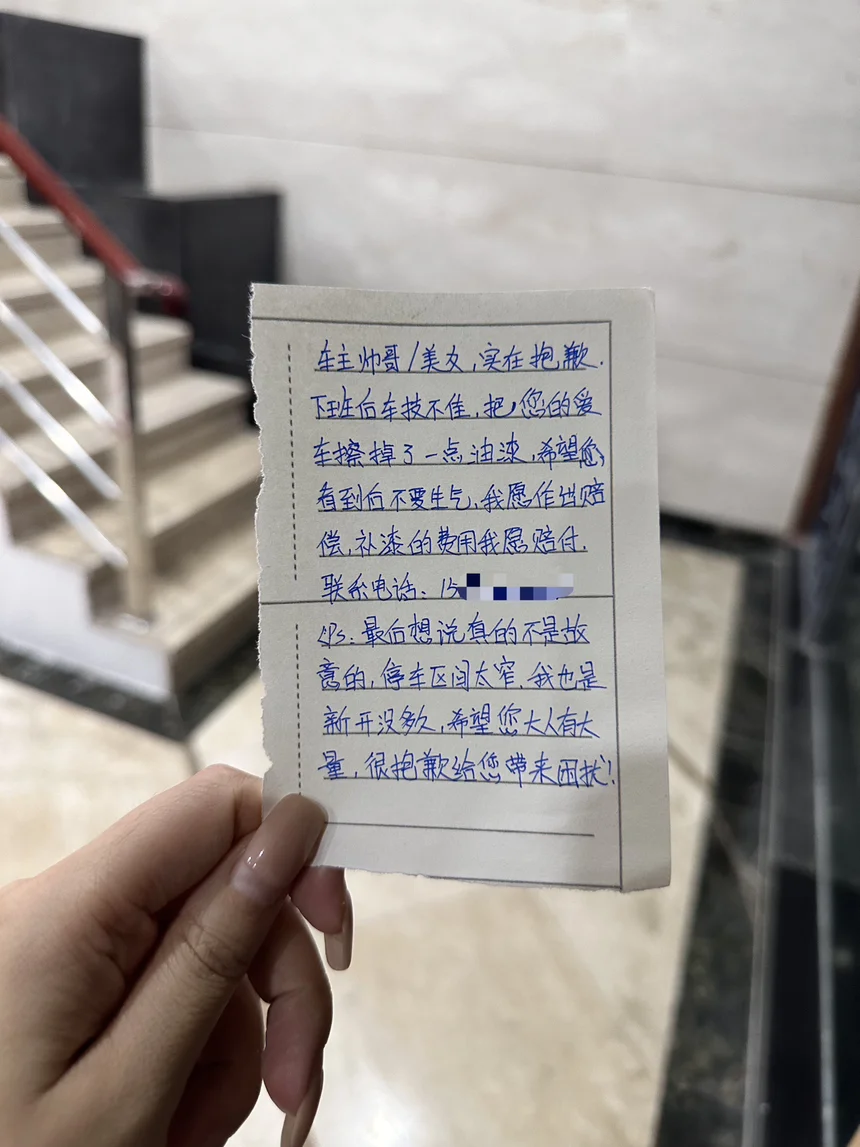 车主帅哥/美女,实在抱歉.
下班后车技不佳,把您的爱
车擦掉了一点油漆,希望您,
看到后不要生气,我愿作出赔
偿,补漆的费用我愿赔付.
联系电话:15
Ps:最后想说真的不是故
意的,停车区间太窄,我也是
新开没多久,希望您大人有大
量,很抱歉给您带来困扰!